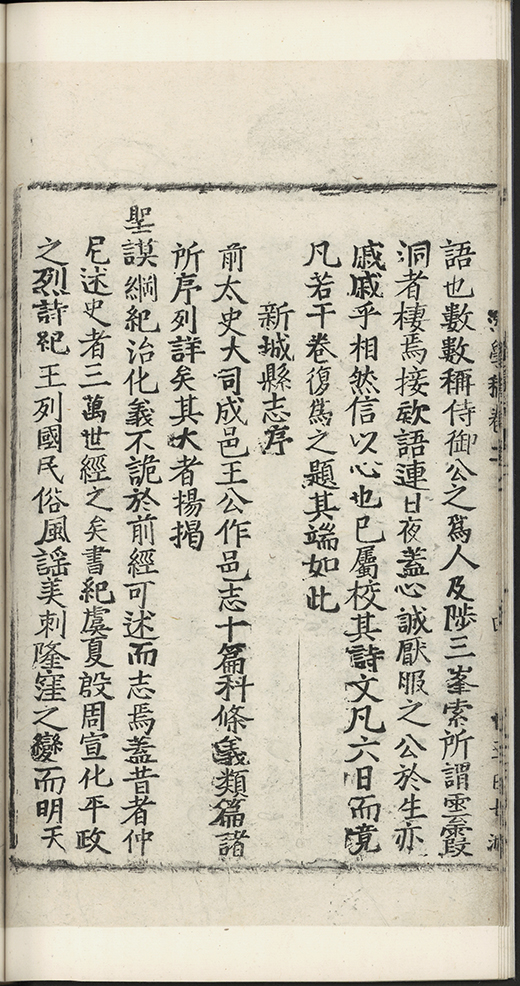 語也數數稱侍御公之為人及陟三峯索所謂雲霞
洞者棲焉接欵語連日夜蓋心誠厭服之公於生亦
戚戚乎相然信以心也已屬校其詩文凡六日而竟
凡若干卷復為之題其端如此
新城縣志序
前太史大司成邑王公作邑志十篇科條義類篇諸
所序列詳矣其大者揚搗
聖謨綱紀治化義不詭於前經可述而志焉蓋昔者仲
尼述史者三萬世經之矣書紀虞夏殷周宣化平政
之烈詩紀王列國民俗風謡美刺隆窪之變而明天